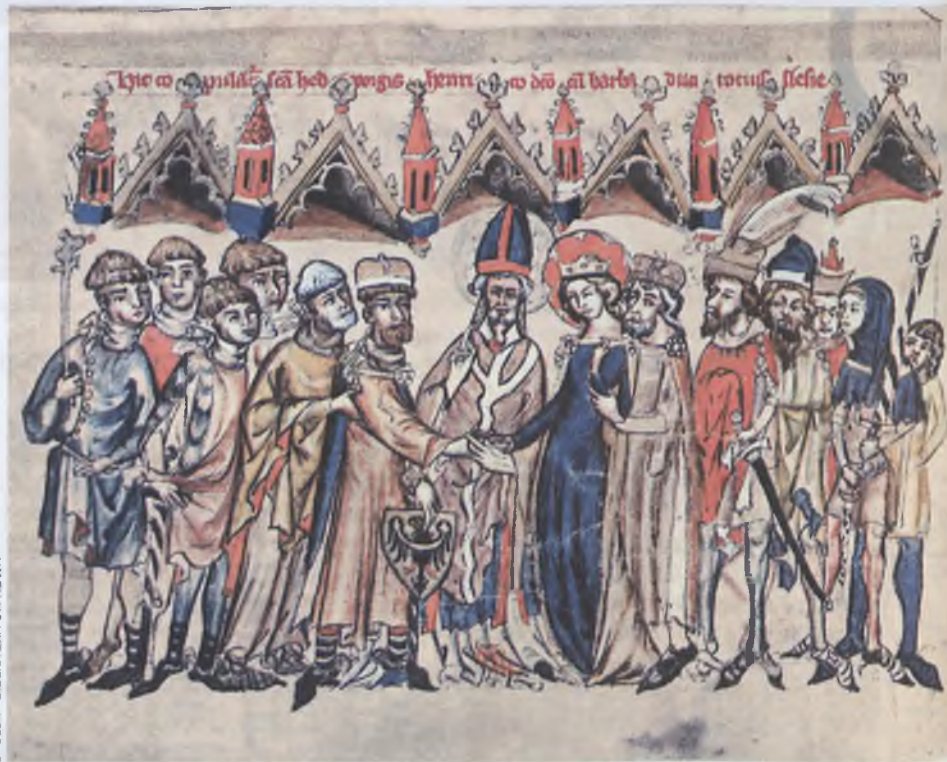 Hic co pulat' scā hed wigis henri co dc̄o cū barba duci tocius slesie